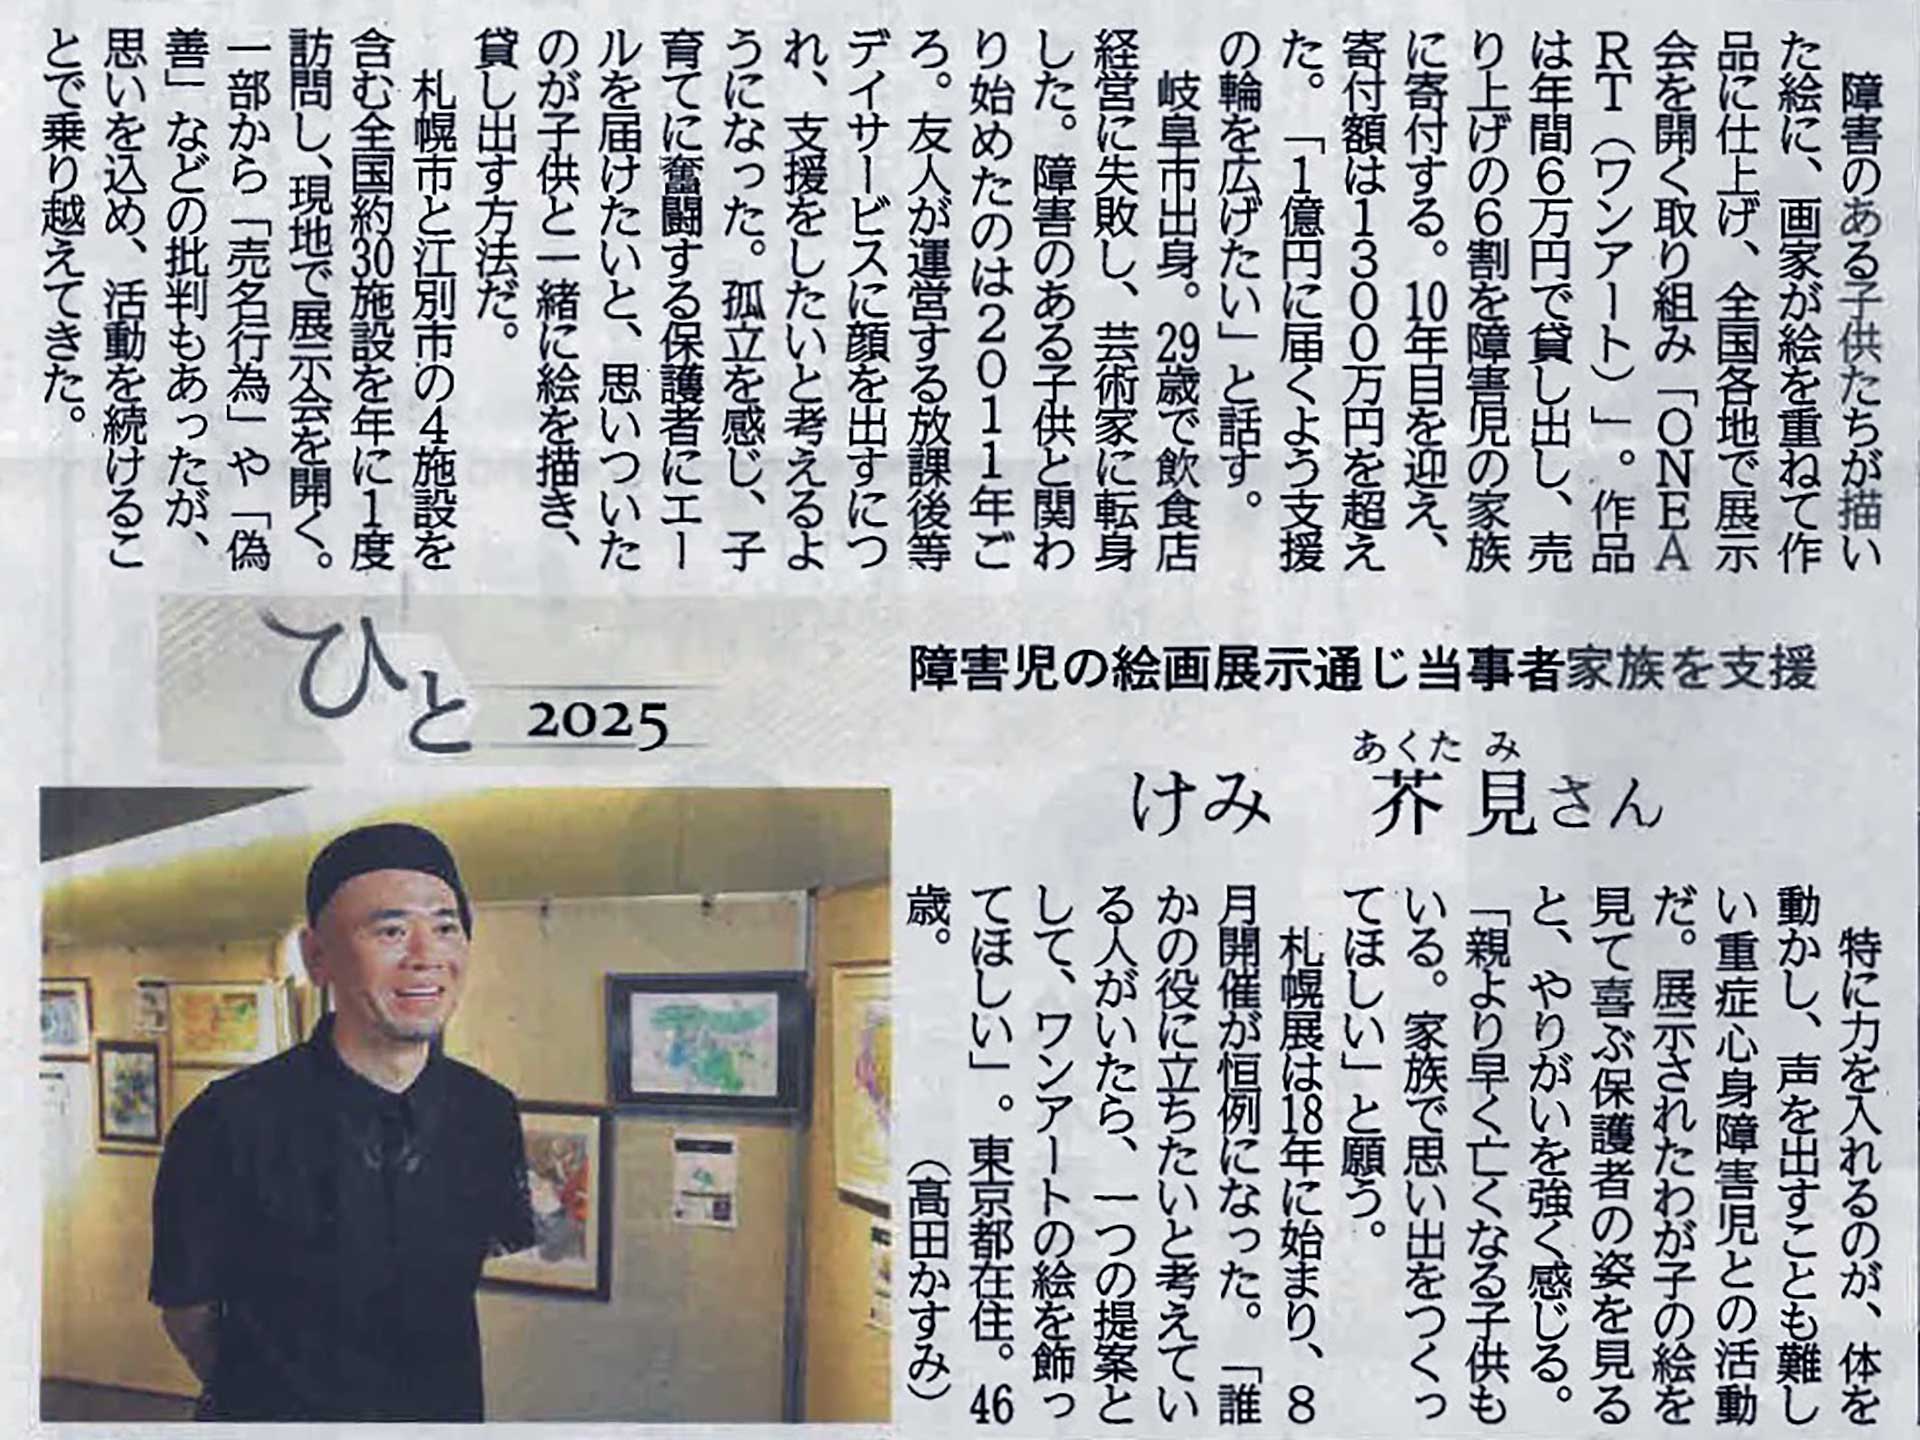 障害児の絵画展示通じ当事者家族を支援
あくたみ
けみ 芥見さん
ひと
2025
障害のある子供たちが描い
た絵に、画家が絵を重ねて作
品に仕上げ、全国各地で展示
会を開く取り組み「ONEA
RT(ワンアート)」。作品
は年間6万円で貸し出し、売
り上げの6割を障害児の家族
に寄付する。10年目を迎え、
寄付額は1300万円を超え
た。「1億円に届くよう支援
の輪を広げたい」と話す。
岐阜市出身。29歳で飲食店
経営に失敗し、芸術家に転身
した。障害のある子供と関わ
り始めたのは2011年ご
ろ。友人が運営する放課後等
デイサービスに顔を出すにつ
れ、支援をしたいと考えるよ
うになった。孤立を感じ、子
育てに奮闘する保護者にエー
ルを届けたいと、思いついた
のが子供と一緒に絵を描き、
貸し出す方法だ。
札幌市と江別市の4施設を
含む全国約30施設を年に1度
訪問し、現地で展示会を開く。
一部から「売名行為」や「偽
善」などの批判もあったが、
思いを込め、活動を続けるこ
とで乗り越えてきた。
特に力を入れるのが、体を
動かし、声を出すことも難し
い重症心身障害児との活動
だ。展示されたわが子の絵を
見て喜ぶ保護者の姿を見る
と、やりがいを強く感じる。
「親より早く亡くなる子供も
いる。家族で思い出をつくっ
てほしい」と願う。
札幌展は18年に始まり、8
月開催が恒例になった。「誰
かの役に立ちたいと考えてい
る人がいたら、一つの提案と
して、ワンアートの絵を飾っ
てほしい」。東京都在住。46
歳。
(高田かすみ)